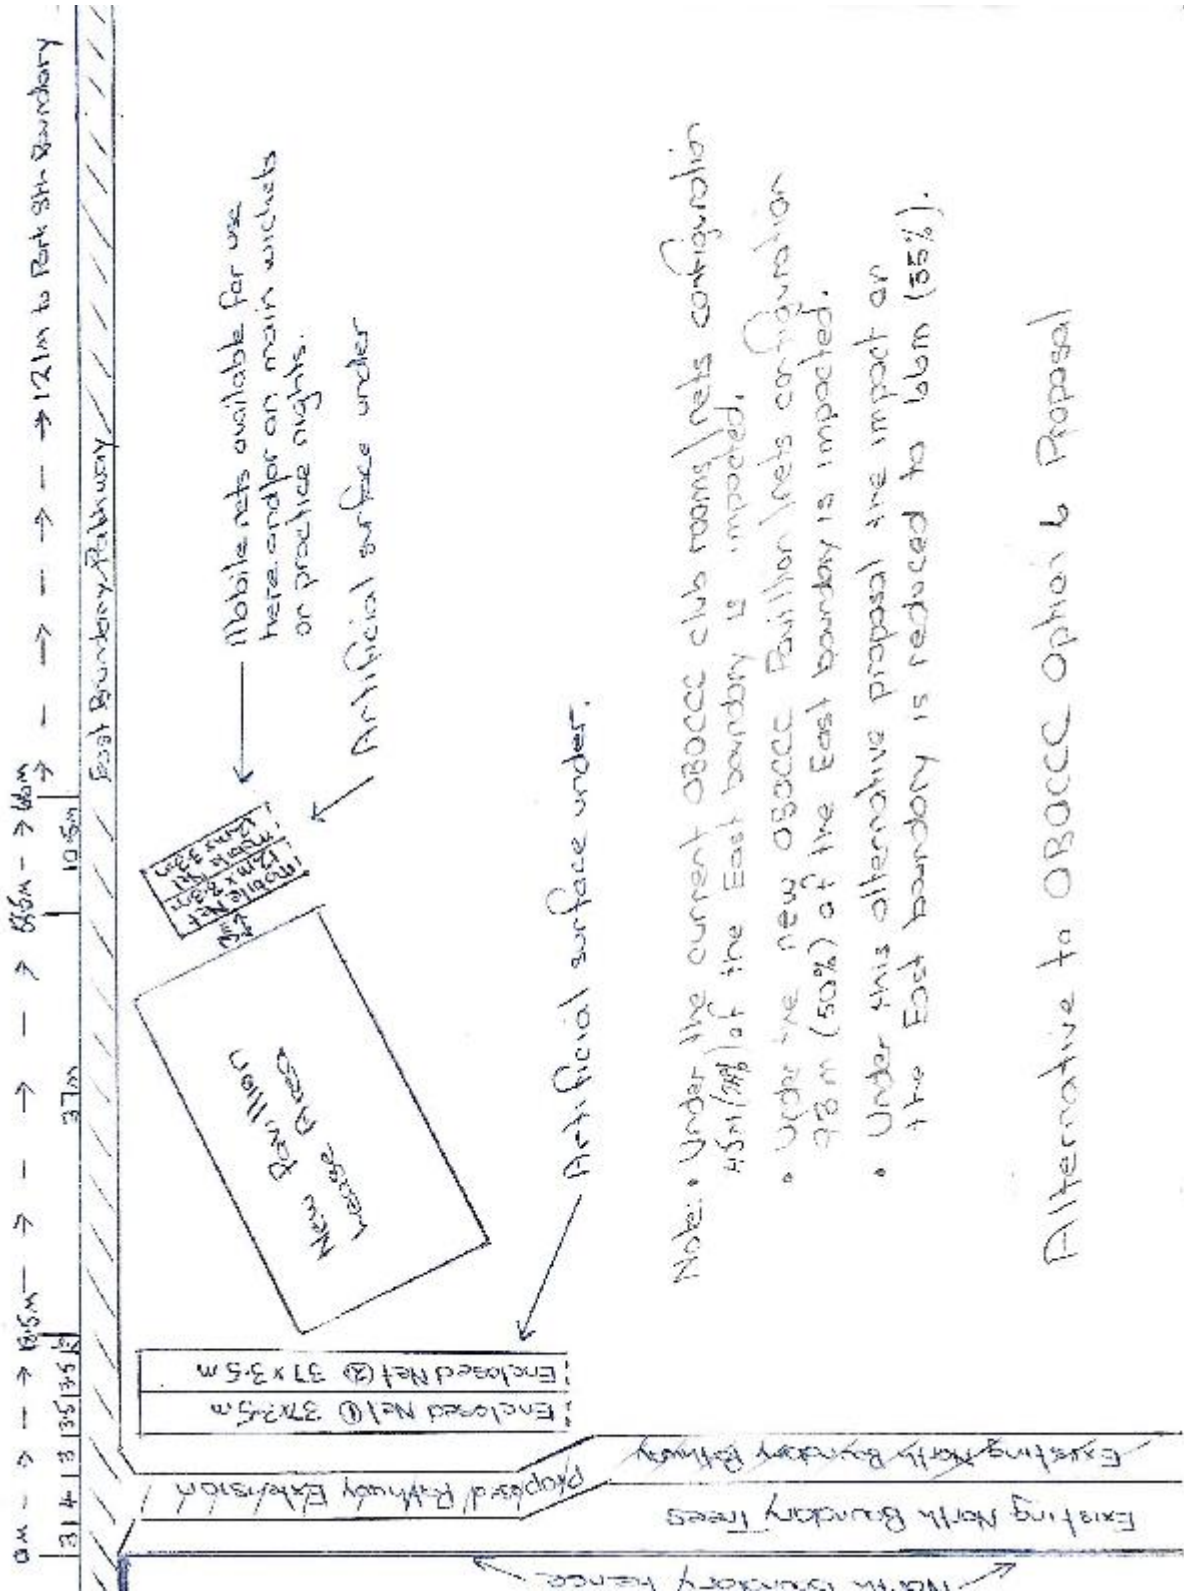 0m - → - → 18.5m → - → - → 55.5m - → 66m
→ - → - → - → 121m to Park Sth Boundary
3 | 4 | 3 | 3 | 3.5 | 3.5
37m
10.5m
East Boundary Pathway
Mobile nets available for use
here and/or on main wickets
on practice nights.
Artificial surface under
Mobile Net
12m x 3.3m
Mobile Net
12m x 3.3m
New Pavillion
Lease Area
Artificial surface under.
Enclosed Net (2) 37 x 3.5m
Enclosed Net (1) 37x3.5m
Proposed Pathway Extension
Existing North Boundary Pathway
Existing North Boundary Trees
North Boundary Fence
Note: • Under the current OBOCCC club rooms/nets configuration
45m of the East boundary is impacted.
• Under the new OBOCCC Pavillion/nets configuration
93m (50%) of the East boundary is impacted.
• Under this alternative proposal the impact on
the East boundary is reduced to 66m (35%).
Alternative to OBOCCC Option 6 Proposal